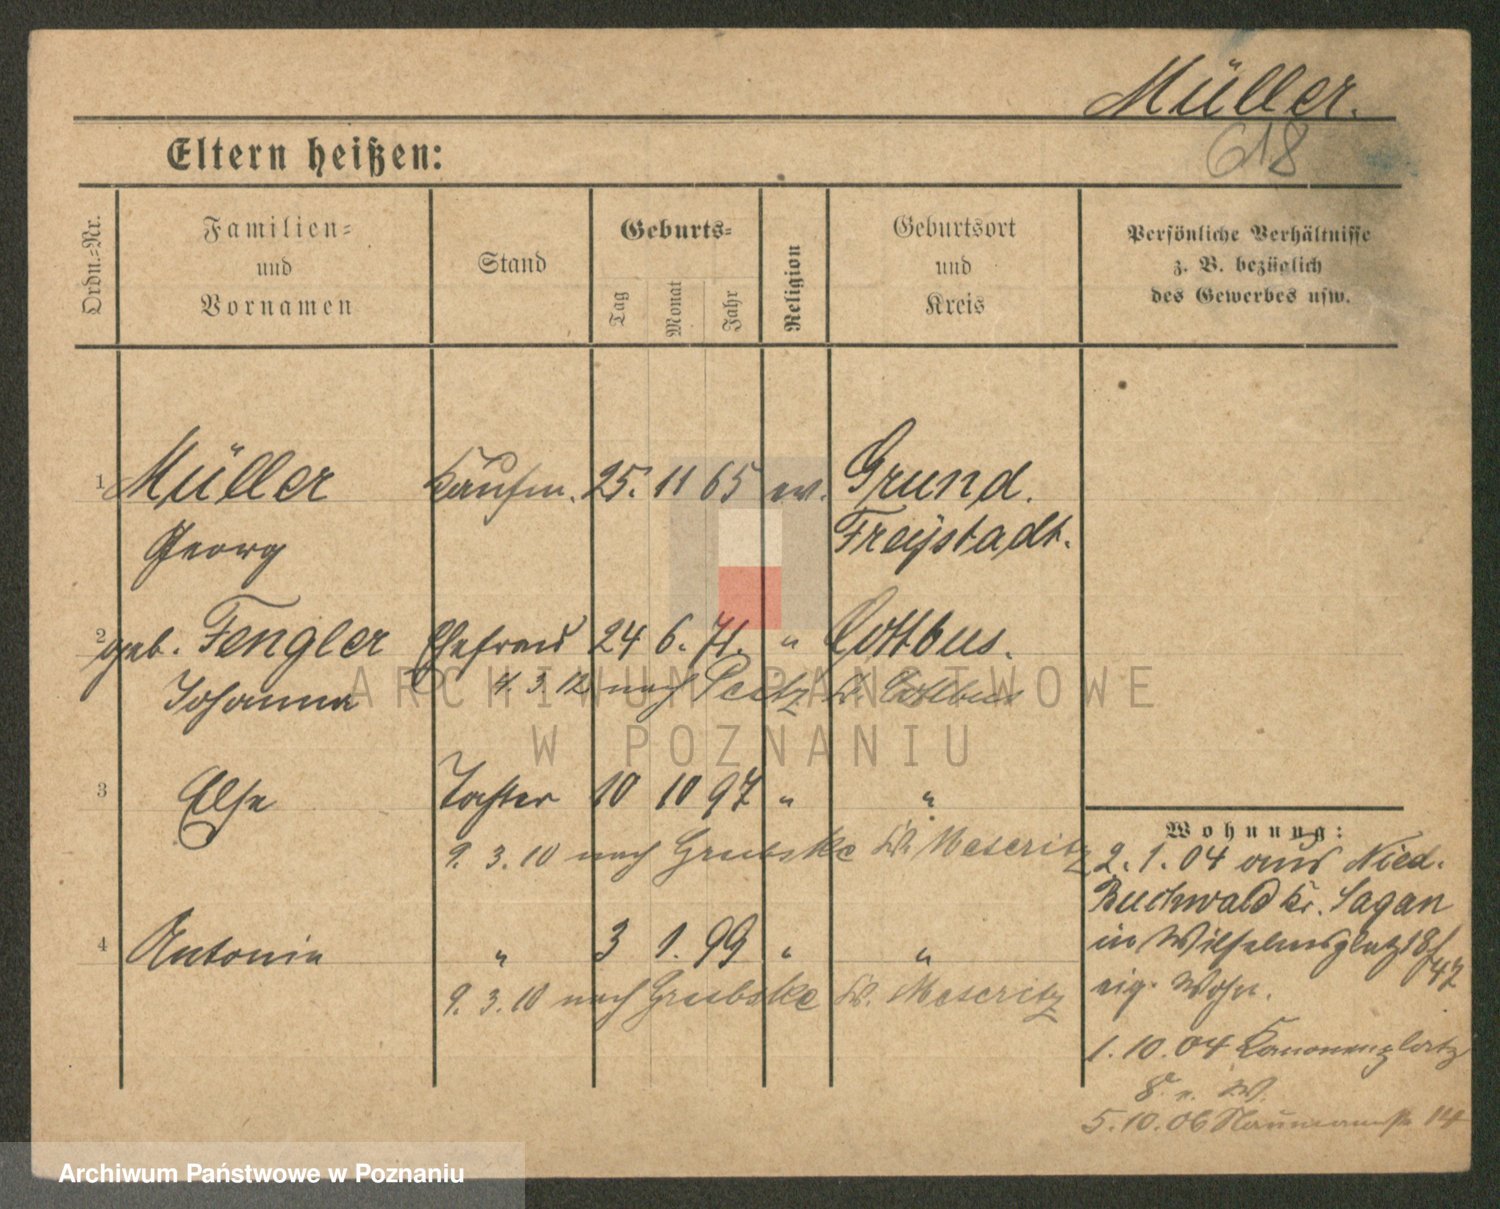 Müller.
618
Eltern heißen:
Ordn.-Nr.
Familien-
und
Vornamen
Stand
Geburts-
Tag
Monat
Jahr
Religion
Geburtsort
und
Kreis
Persönliche Verhältnisse
z. B. bezüglich
des Gewerbes usw.
1 Müller Kaufm. 25. 11 65 ev. Grund.
Georg Freystadt.
2 geb. Fengler Ehefrau 24 6. 71. " Cottbus.
Johanna 4. 3. 12 nach Peitz Kr. Cottbus
3 Else Tochter 10 10 97 " "
9. 3. 10 nach Grubske Kr. Meseritz
4 Antonie " 3 1. 99 " "
9. 3. 10 nach Grubske Kr. Meseritz
Wohnung:
2. 1. 04 aus Nied.
Buchwald Kr. Sagan
in Wilhelmsplatz 18/
47
eig. Wohn.
1. 10. 04 Kanonenplatz
8 e. W.
5. 10. 06 Naumannstr 14
ARCHIWUM PAŃSTWOWE
W POZNANIU
Archiwum Państwowe w Poznaniu